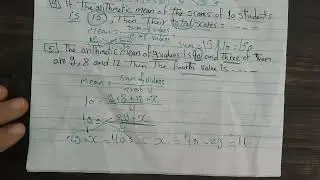 If the arithmetic mean of the scores of 10 students
is (15), Then Their total scores =
mean = sum of values
[5] The arithmetic mean of 4 values is 10 and three of them
are 9, 8 and 12 Then The fourth value is
mean = sum of values
n of V
10 = 9+8+12+x
4
10 = 29+x
4
29+x = x = 40-29 = 11